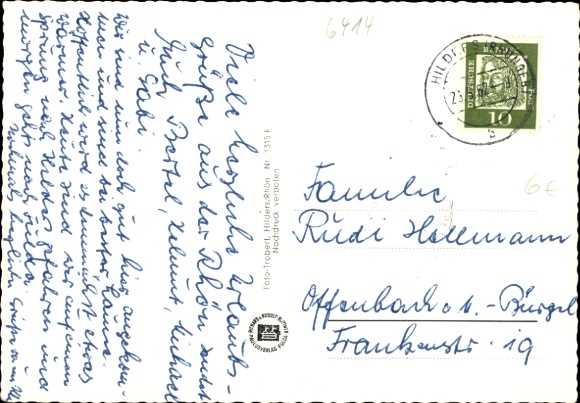 6414
Viele herzliche Urlaubs-
grüße aus der Rhön sendet
Euch Bertel, Helmut, Michael
u. Gabi.
Wir sind nun doch gut hier angekom-
men und sind bei bester Laune.
Hoffentlich wird es demnächst etwas
wärmer. Heute sind wir auf einen
Sprung nach Hilders gefahren und
morgen geht's nach Fulda.
Foto-Trabert, Hilders/Rhön Nr. 1315 F
Nachdruck verboten
HILDERS
DEUTSCHE BUNDESPOST
10
6€
Familie
Rudi Hallmann
Offenbach a. M.-Bürgel
Frankenstr. 19